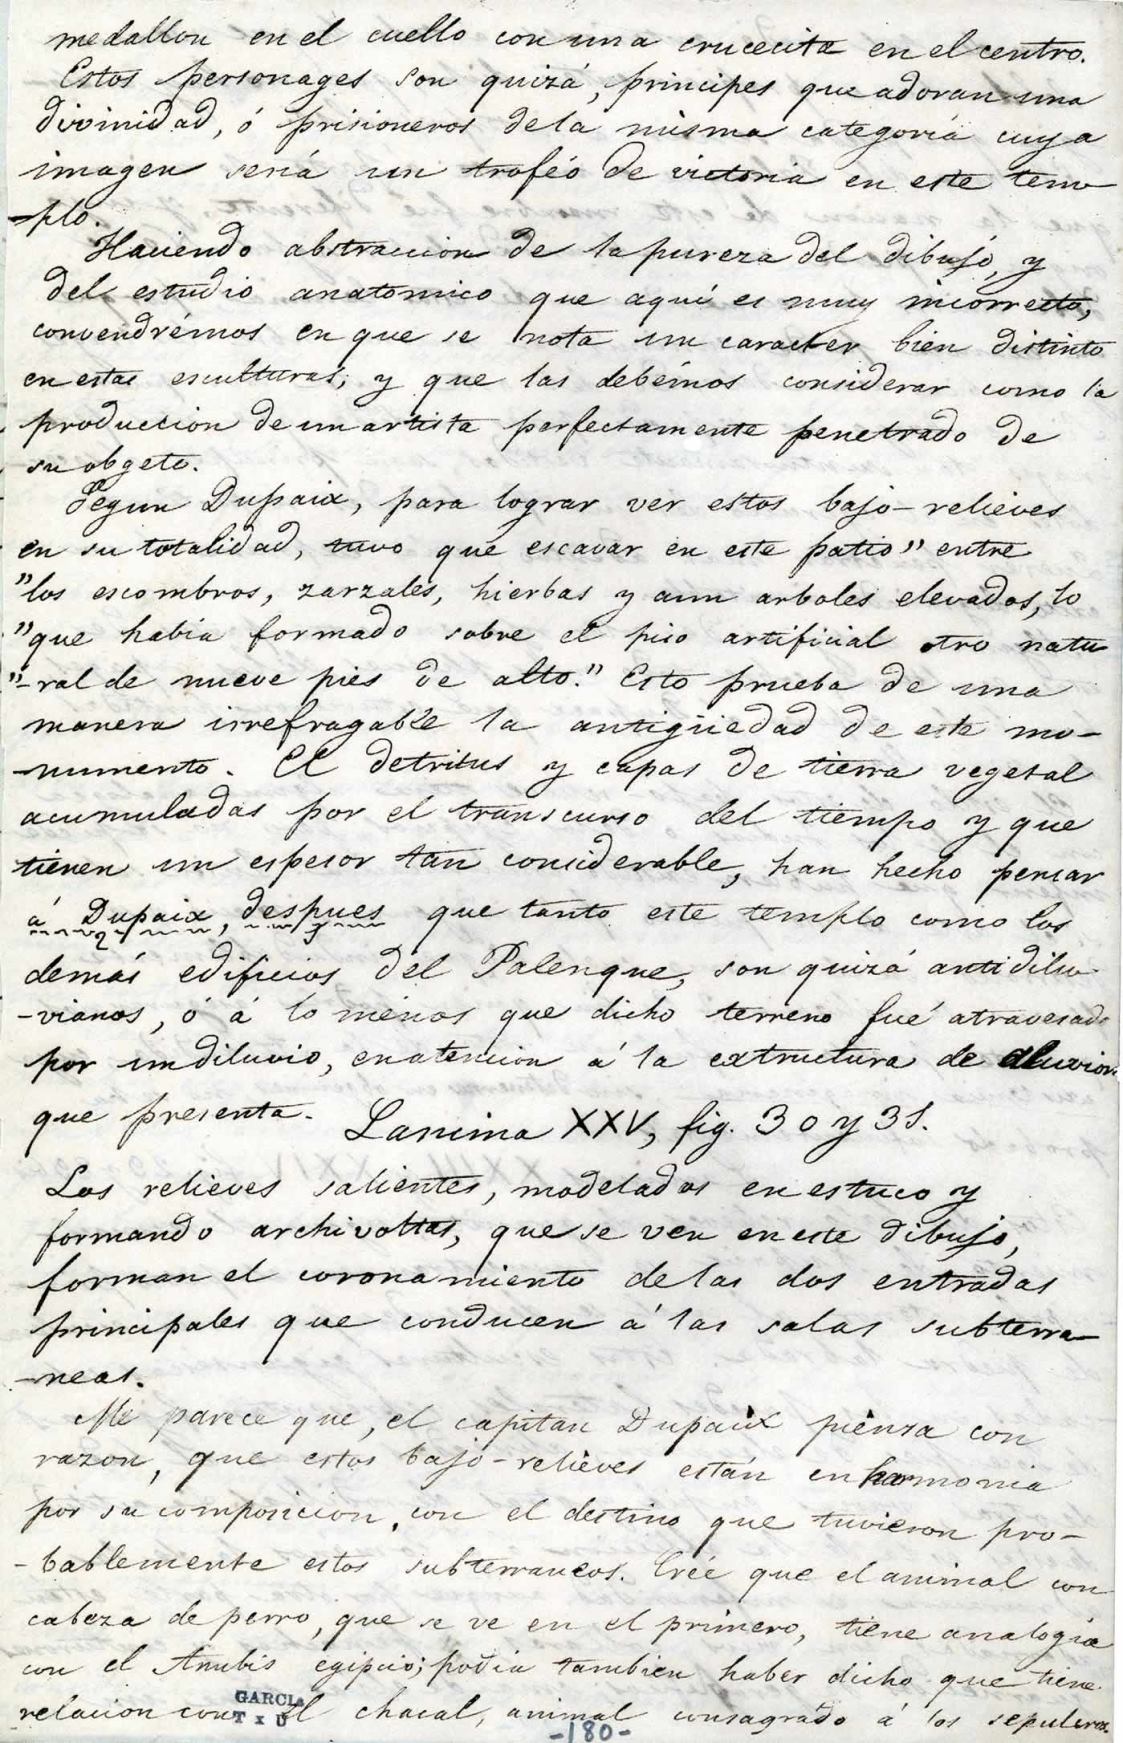 medallon en el cuello con una crucecita en el centro.
Estos personages son quizá, principes que adoran una
divinidad, ó prisioneros de la misma categoria cuya
imagen seriá un troféo de victoria en este tem-
-plo.
Haciendo abstraccion de la pureza del dibujó, y
del estudio anatomico que aquí es muy incorrecto,
convendrémos en que se nota un caracter bien distinto
en estas esculturas, y que las debémos considerar como la
produccion de un artista perfectamente penetrado de
su obgeto.
Segun Dupaix, para lograr ver estos bajo-relieves
en su totalidad, tuvo que escavar en este patio " entre
" los escombros, zarzales, hierbas y aun arboles elevados, lo
" que habia formado sobre el piso artificial otro natu-
"-ral de nueve pies de alto." Esto prueba de una
manera irrefragable la antigüedad de este mo-
-numento. El detritus y capas de tierra vegetal
acumuladas por el transcurso del tiempo y que
tienen un espesor tan considerable, han hecho pensar
á Dupaix, despues que tanto este templo como los
demás edificios del Palenque, son quizá antidilu-
-vianos, ó á lo ménos que dicho terreno fué atravesado
por un diluvio, en atencion á la extructura de aluvion
que presenta.
Lamina XXV, fig. 30 y 31.
Los relieves salientes, modelados en estuco y
formando archivoltas, que se ven en este dibujo,
forman el coronamiento de las dos entradas
principales que conducen á las salas subterra-
-neas.
Me parece que, el capitan Dupaix pienza con
razon, que estos bajó-relieves están en harmonia
por su composicion, con el destino que tuvieron pro-
-bablemente estos subterraneos. Créé que el animal con
cabeza de perro, que se ve en el primero, tiene analogia
con el Anubis egipcio; podia tambien haber dicho que tiene
relacion con el chacal, animal consagrado á los sepulcros.
GARCIA
T x U
-180-